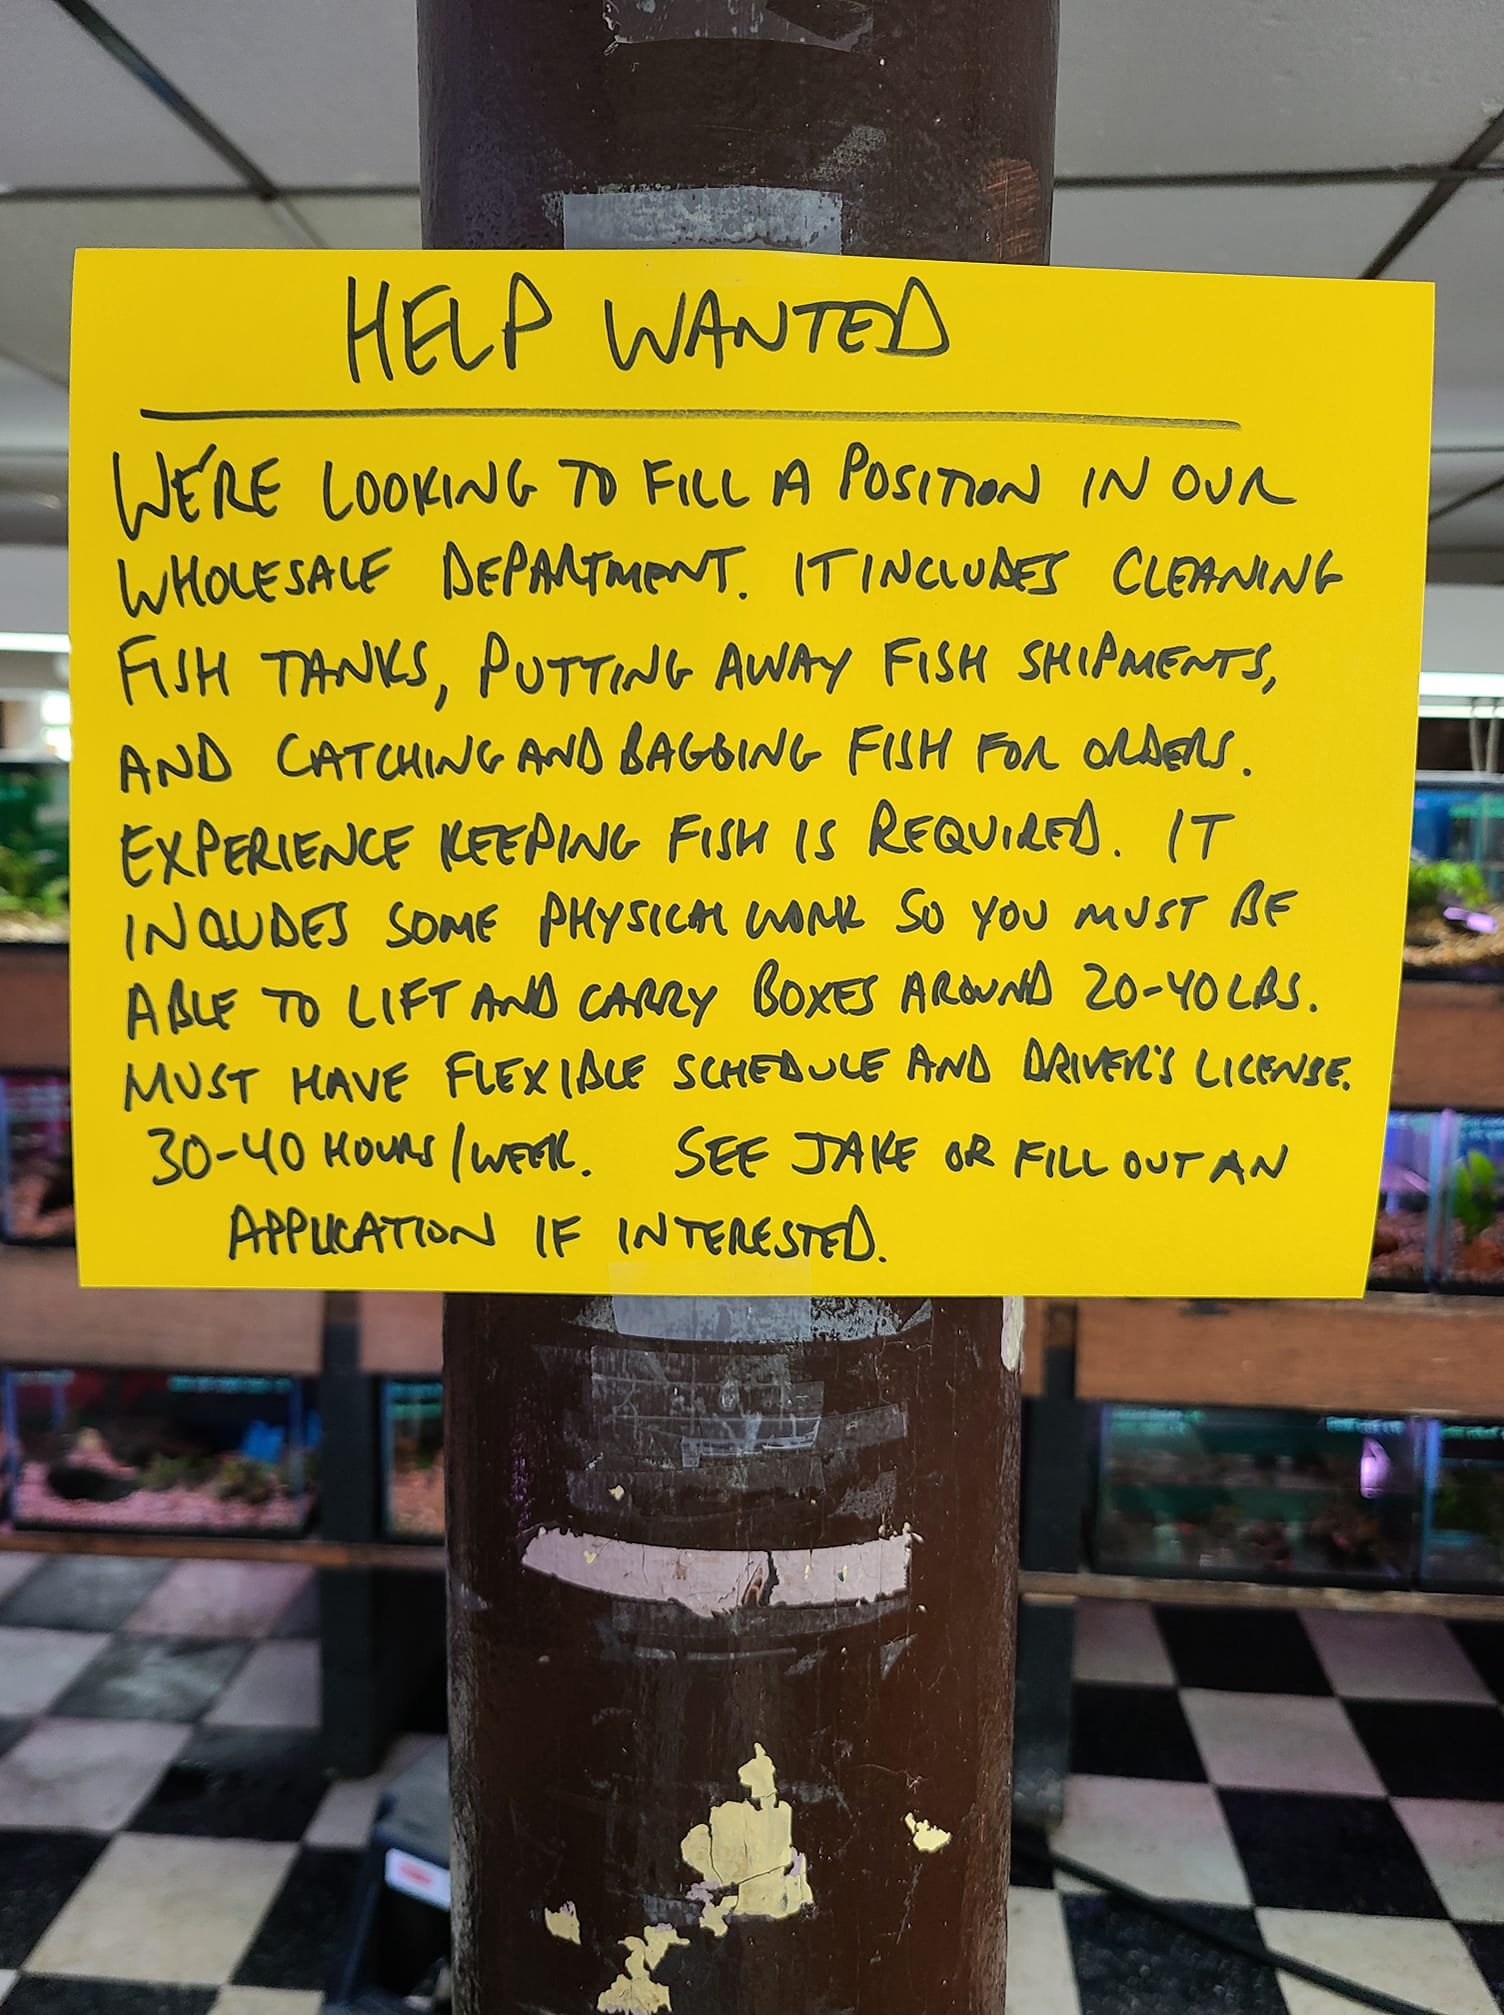 HELP WANTED
WE'RE LOOKING TO FILL A POSITION IN OUR
WHOLESALE DEPARTMENT. IT INCLUDES CLEANING
FISH TANKS, PUTTING AWAY FISH SHIPMENTS,
AND CATCHING AND BAGGING FISH FOR ORDERS.
EXPERIENCE KEEPING FISH IS REQUIRED. IT
INCLUDES SOME PHYSICAL WORK SO YOU MUST BE
ABLE TO LIFT AND CARRY BOXES AROUND 20-40 LBS.
MUST HAVE FLEXIBLE SCHEDULE AND DRIVER'S LICENSE.
30-40 HOURS/WEEK. SEE JAKE OR FILL OUT AN
APPLICATION IF INTERESTED.